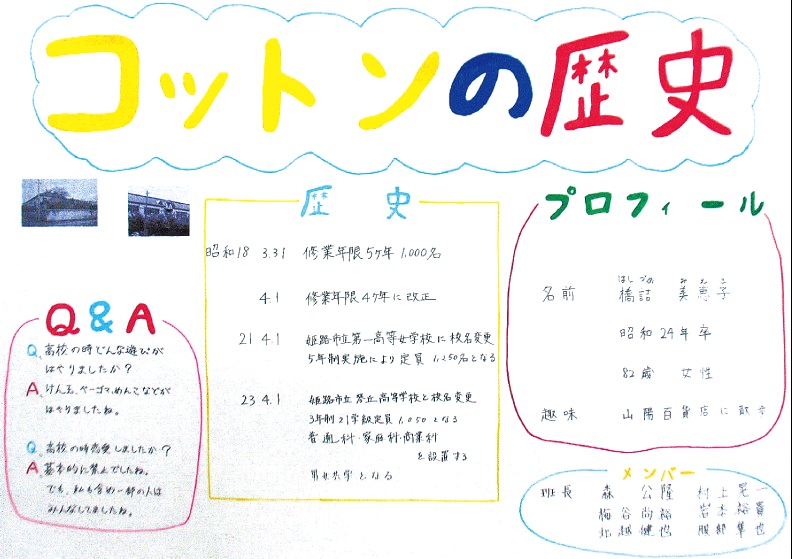 コットンの歴史
歴史
昭和18 3.31 修業年限5ケ年 1,000名
4.1 修業年限4ケ年に改正
21 4.1 姫路市立第一高等女学校に校名変更
5年制実施により定員 1,250名となる
23 4.1 姫路市立琴丘高等学校と校名変更
3年制21学級定員1,050となる
普通科・家庭科・商業科
を設置する
男女共学となる
Q&A
Q、高校の時どんな遊びが
はやりましたか？
A、けん玉、ベーゴマ、めんこなどが
はやりましたね。
Q、高校の時恋愛しましたか？
A、基本的に禁止でしたね。
でも、私も含め一部の人は
みんなしてましたね。
プロフィール
はしづめ みえこ
名前 橋詰 美恵子
昭和24年卒
82歳 女性
趣味 山陽百貨店に散歩
メンバー
班長 森 公隆 村上晃一
梅谷尚裕 岩本裕貴
北越健也 服部隼也